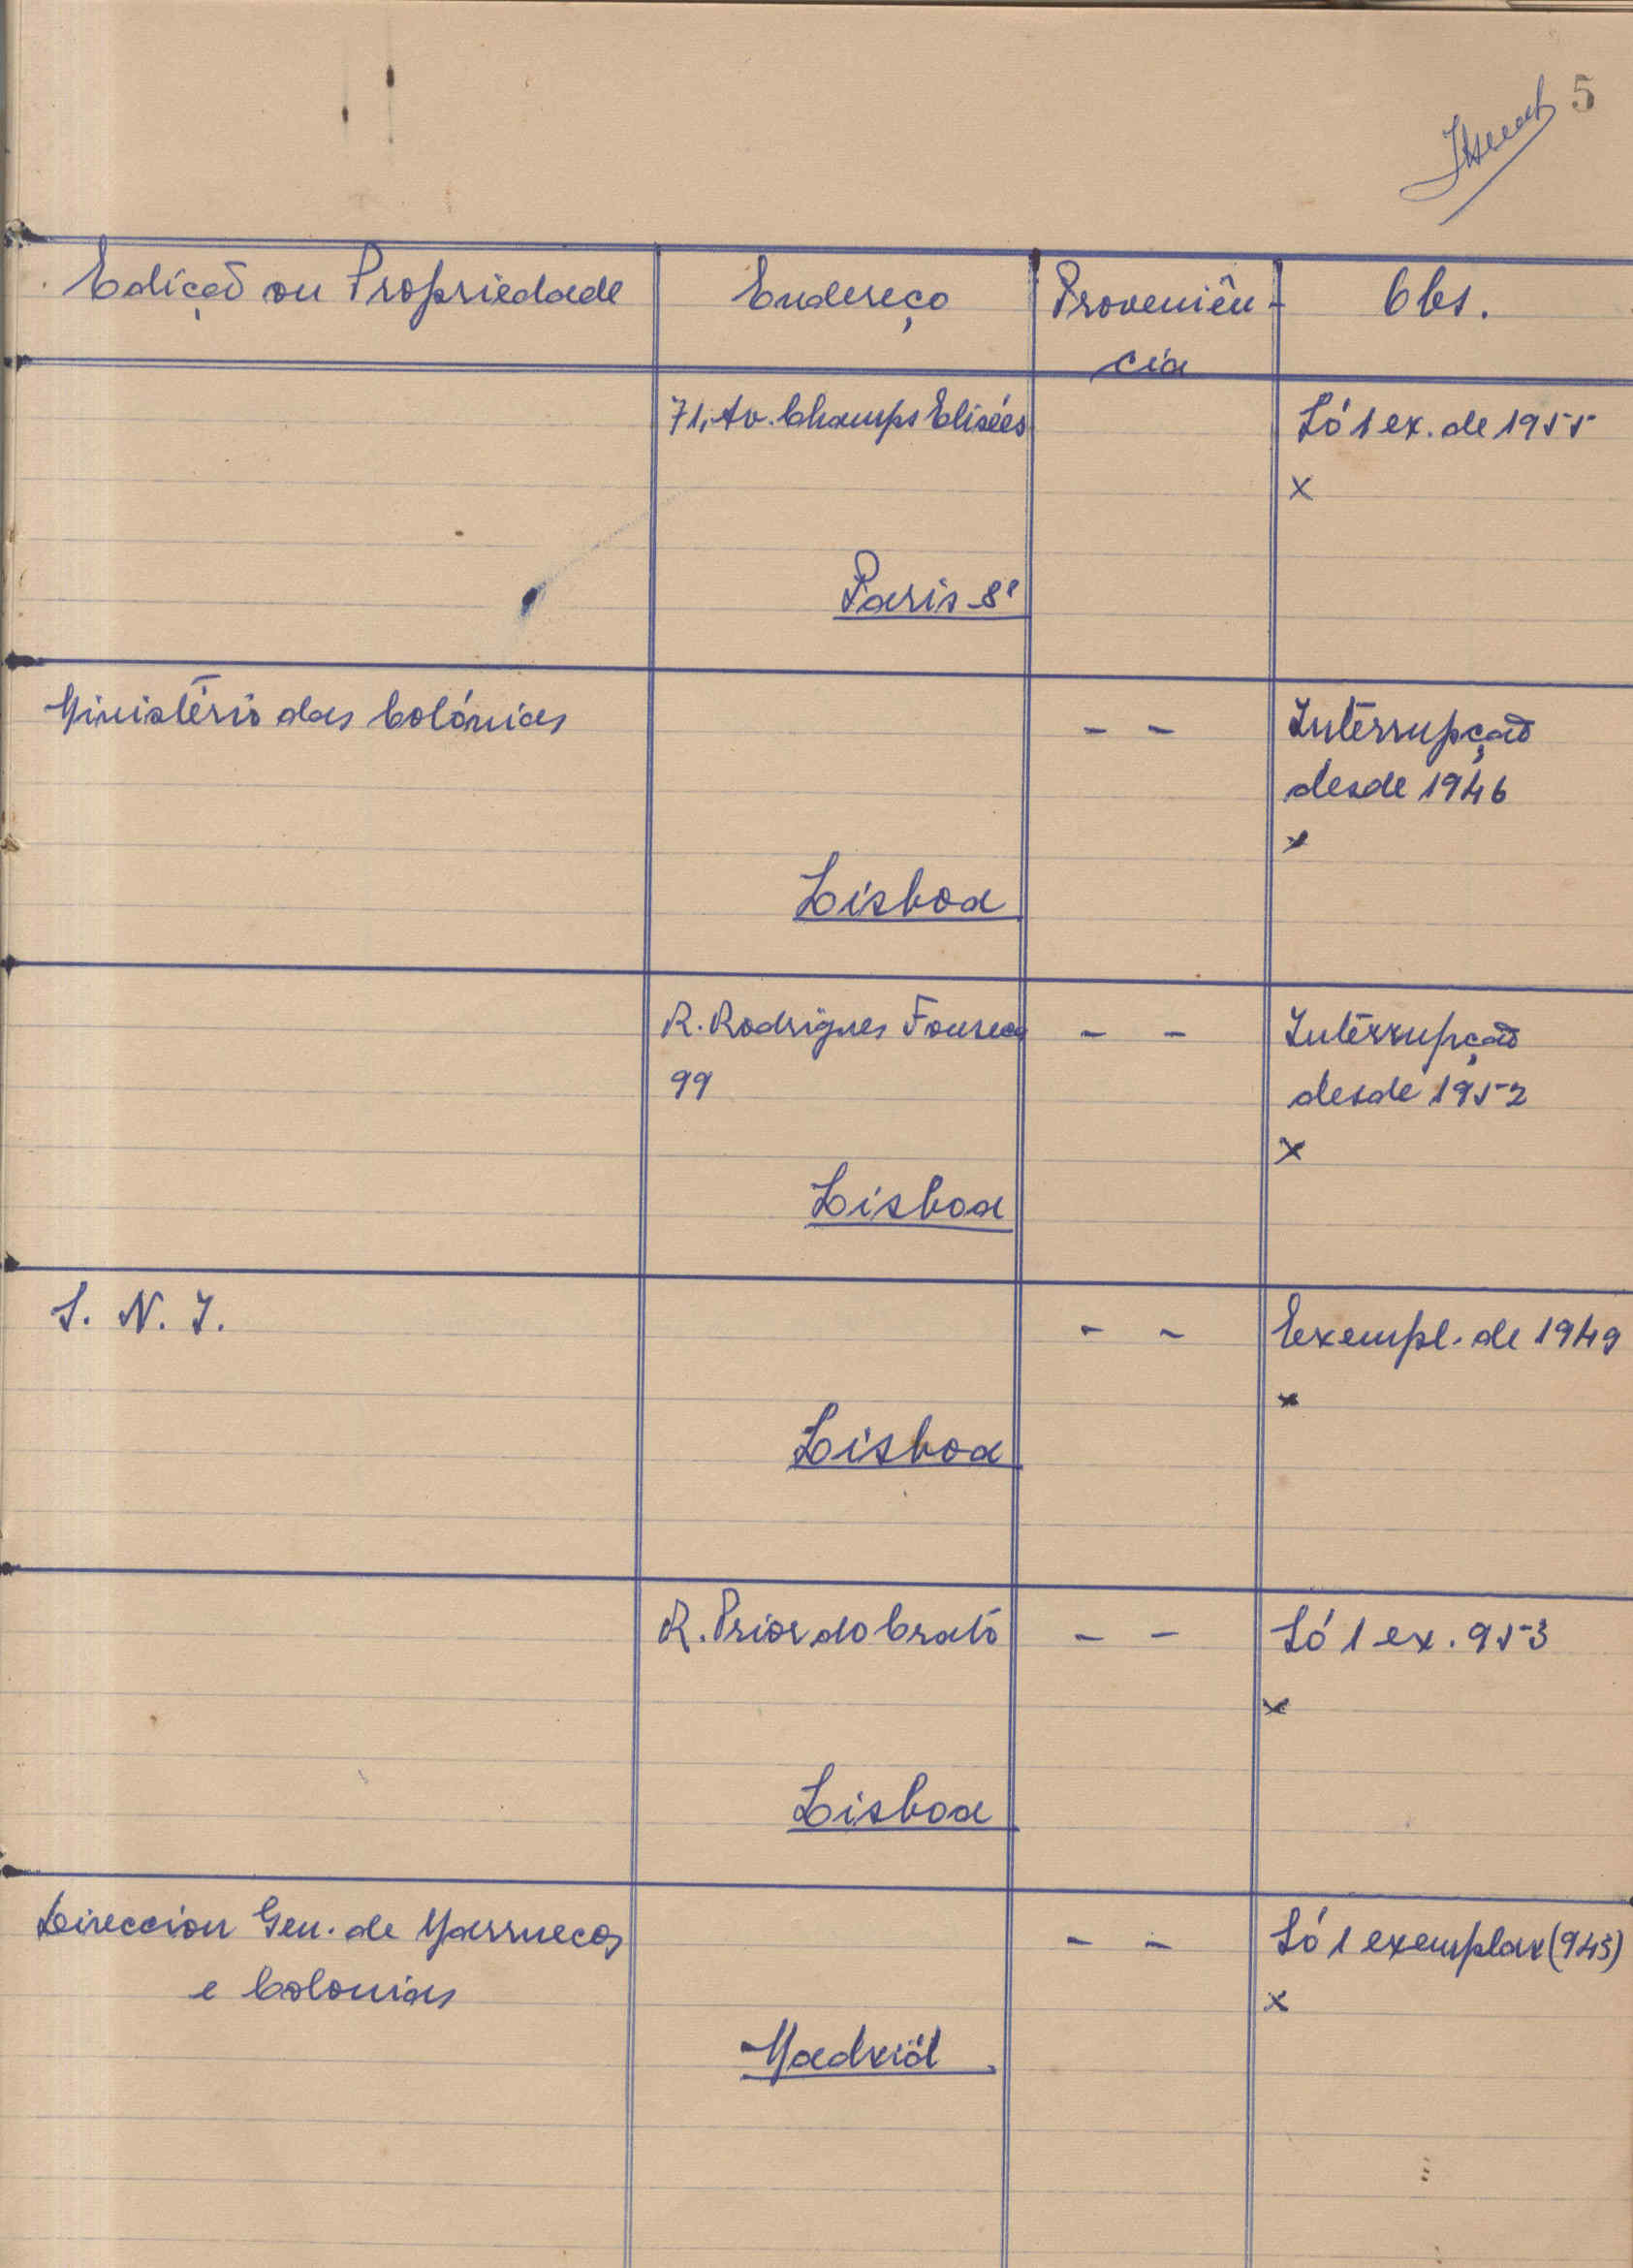 5
Edição ou Propriedade Endereço Proveniên- Obs.
cia
71, Av. Champs Elisées Só 1 ex. de 1955
x
Paris 8e
Ministério das Colónias - - Interrupção
desde 1946
x
Lisboa
R. Rodrigues Fonseca - - Interrupção
99 desde 1952
x
Lisboa
S. N. I. - - Exempl. de 1949
x
Lisboa
R. Prior do Crato - - Só 1 ex. 953
x
Lisboa
Direccion Gen. de Marruecos - - Só 1 exemplar (945)
e Colonias x
Madrid